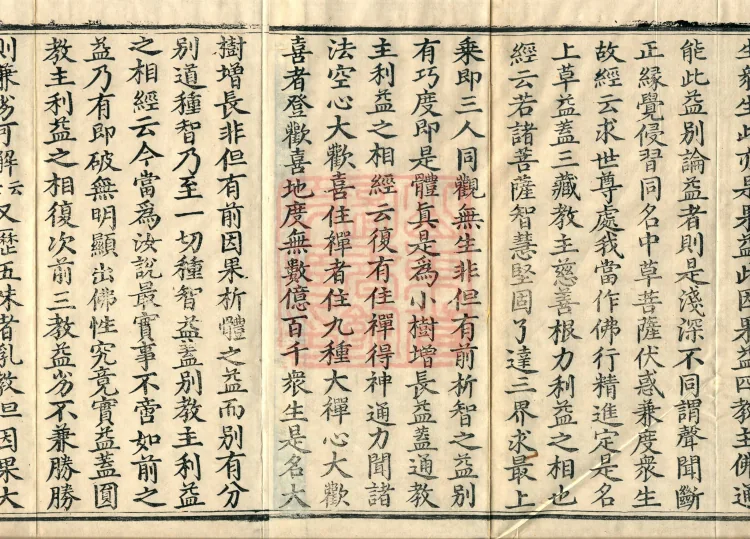 衆生此亦是果益此因果益四教主佛道
能此益別論益者則是淺深不同謂聲聞斷
正緣覺侵習同名中草菩薩伏惑兼度衆生
故經云求世尊處我當作佛行精進定是名
上草益蓋三藏教主慈善根力利益之相也
經云若諸菩薩智慧堅固了達三界求最上
乘即三人同觀無生非但有前析智之益別
有巧度即是體真是爲小樹增長益蓋通教
主利益之相經云復有住禪得神通力聞諸
法空心大歡喜住禪者住九種大禪心大歡
喜者登歡喜地度無數億百千衆生是名大
樹增長非但有前因果析體之益而別有分
別道種智乃至一切種智益蓋別教主利益
之相經云今當爲汝說最實事不啻如前之
益乃有即破無明顯出佛性究竟實益蓋圓
教主利益之相復次前三教益劣不兼勝勝
則兼劣可解云云又歷五味者乳教但因果大